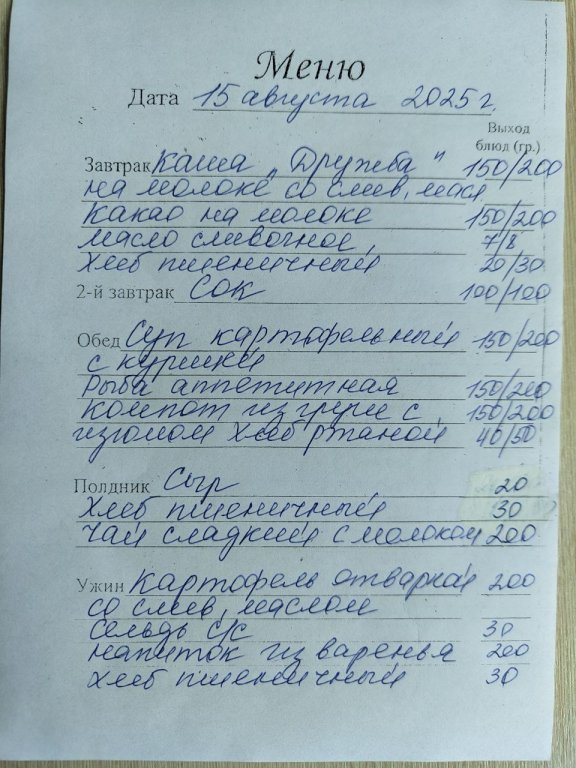 Меню
Дата 15 августа 2025 г.
Выход
блюд (гр.)
Завтрак Каша „Дружба" 150/200
на молоке со слив, масл
Какао на молоке 150/200
масло сливочное 7/8
Хлеб пшеничный 20/30
2-й завтрак Сок 100/100
Обед Суп картофельный 150/200
с курицей
Рыба аппетитная 150/200
Компот из груш с 150/200
изюмом Хлеб ржаной 40/50
Полдник Сыр 20
Хлеб пшеничный 30
Чай сладкий с молоком 200
Ужин Картофель отварной 200
со слив, маслом
Сельдь с/с 30
напиток из варенья 200
Хлеб пшеничный 30